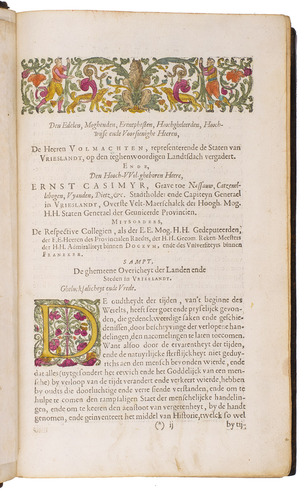 Den Edelen, Moghenden, Erentphesten, Hoochgheleerden, Hooch-
wijse ende Voorsienighe Heeren,
De Heeren VOLMACHTEN, representerende de Staten van
VRIESLANDT, op den teghenwoordigen Landtsdach vergadert.
ENDE,
Den Hooch-Wel-gheboren Heere,
ERNST CASIMYR, Grave toe Nassouw, Catzenel-
lebogen, Vyanden, Dietz, &c. Stadtholder ende Capiteyn Generael
in VRIESLANDT, Overste Velt-Marschalck der Hoogh. Mog.
H.H. Staten Generael der Geunieerde Provincien.
MITSGADERS,
De Respective Collegien, als der E.E. Mog. H.H. Gedeputeerden,
der E.E. Heeren des Provincialen Raedts, der H.H. Gecom. Reken Meesters
der H.H. Admiraliteyt binnen DOCKUM, ende des Universiteyts binnen
FRANEKER.
SAMPT.
De ghemeene Overicheyt der Landen ende
Steden in VRIESLANDT.
Gheluck salicheyt ende Vrede.
DE oudtheydt der tijden, van't beginne des
Werelts, heeft seer geerende pryselijck gevon-
den, die gedenckweerdige saken ende geschie-
denissen, door beschryvinge der verlopene han-
delingen, den nacomelingen te laten toecomen.
Want alsoo door de ervarentheyt der tijden,
ende de natuyrlijcke sterflijckheyt niet geduy-
richs aen den mensch bevonden wierde, ende
dat alles (uytgesondert het eewich ende het Goddelijck van een men-
sche) by verloop van de tijdt verandert ende verkeert wierde, hebben
by oudts die doorluchtige ende verre siende verstanden, ende om te
hulpe te comen den rampsaligen Staet der menschelijcke handelin-
gen, ende om te keeren den aenstoot van vergetenheyt, by de handt
genomen, ende geinventeert het middel van Historie, twelck so wel
(*) ij
by tij-